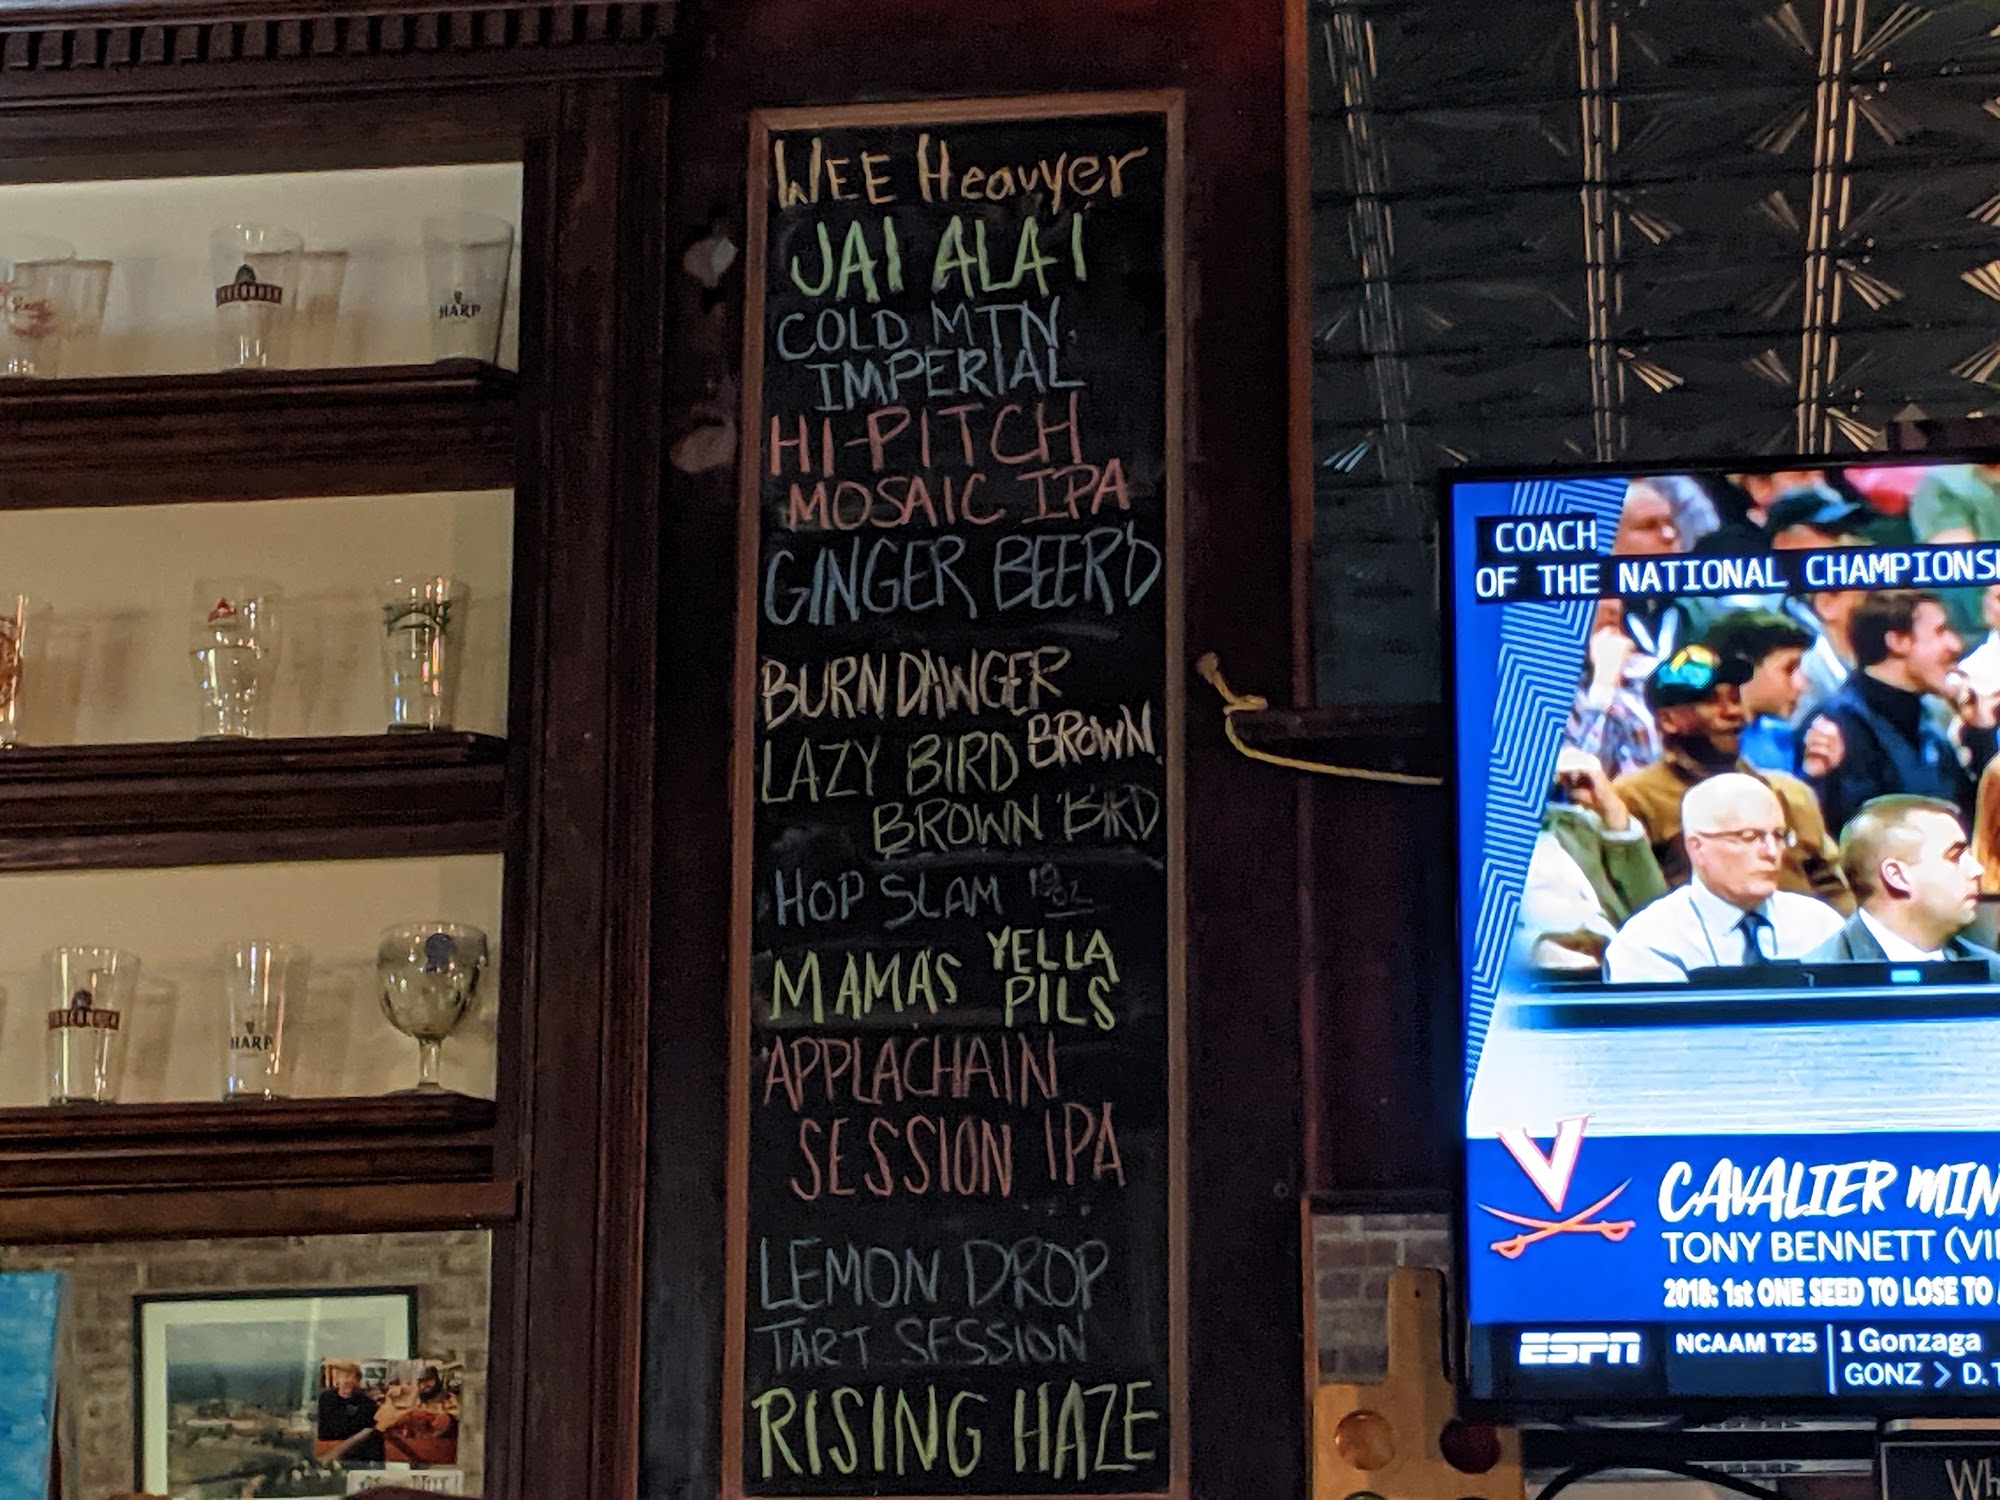 WEE Heavyer
JAI ALAI
COLD MTN.
IMPERIAL
HI-PITCH
MOSAIC IPA
GINGER BEER'D
BURNDAWGER
BROWN
LAZY BIRD
BROWN BIRD
HOP SLAM 19oz
MAMA'S YELLA
PILS
APPLACHAIN
SESSION IPA
LEMON DROP
TART SESSION
RISING HAZE
HARP
HARP
COACH
OF THE NATIONAL CHAMPIONS
CAVALIER MIN
TONY BENNETT (VI
2018: 1st ONE SEED TO LOSE TO
ESPN
NCAAM T25
1 Gonzaga
GONZ > D.T
Wh